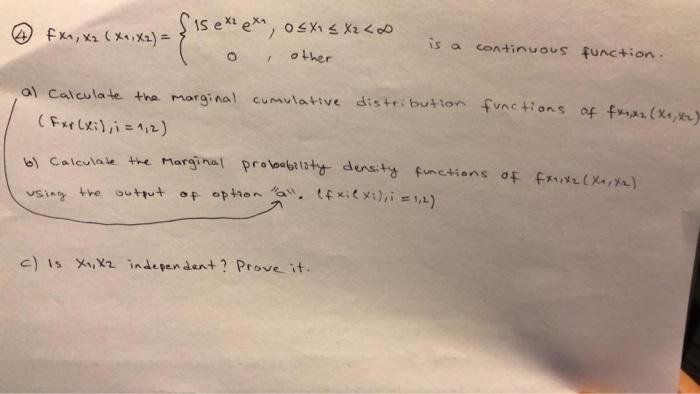 ④ fx₁,x₂(x₁,x₂) = { 15 e^x₂ e^x₁, 0≤x₁≤x₂<∞
0 , other
is a continuous function.
a) Calculate the marginal cumulative distribution functions of fx₁,x₂(x₁,x₂)
(Fxi(xi), i = 1,2)
b) Calculate the Marginal probability density functions of fx₁,x₂(x₁,x₂)
using the output of option "a". (fxi(xi), i = 1,2)
c) Is x₁,x₂ independent? Prove it.